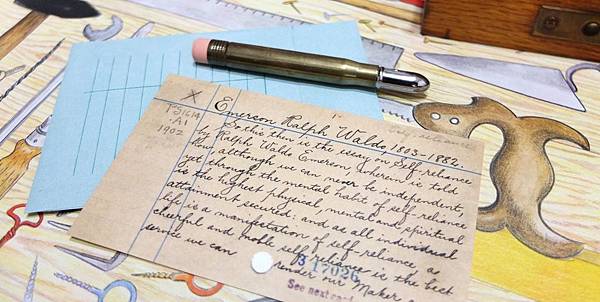 X
PS1614
.A1
1902
Emerson Ralph Waldo 1803-1882.
So this then is the essay on Self-reliance
by Ralph Waldo Emerson, wherein is told
how, although we can never be independent,
yet through the mental habit of self-reliance
is the highest physical, mental and spiritual
attainment secured: and as all individual
life is a manifestation of self-reliance a
cheerful and noble self reliance is the best
service we can render our Maker
317056
See next card